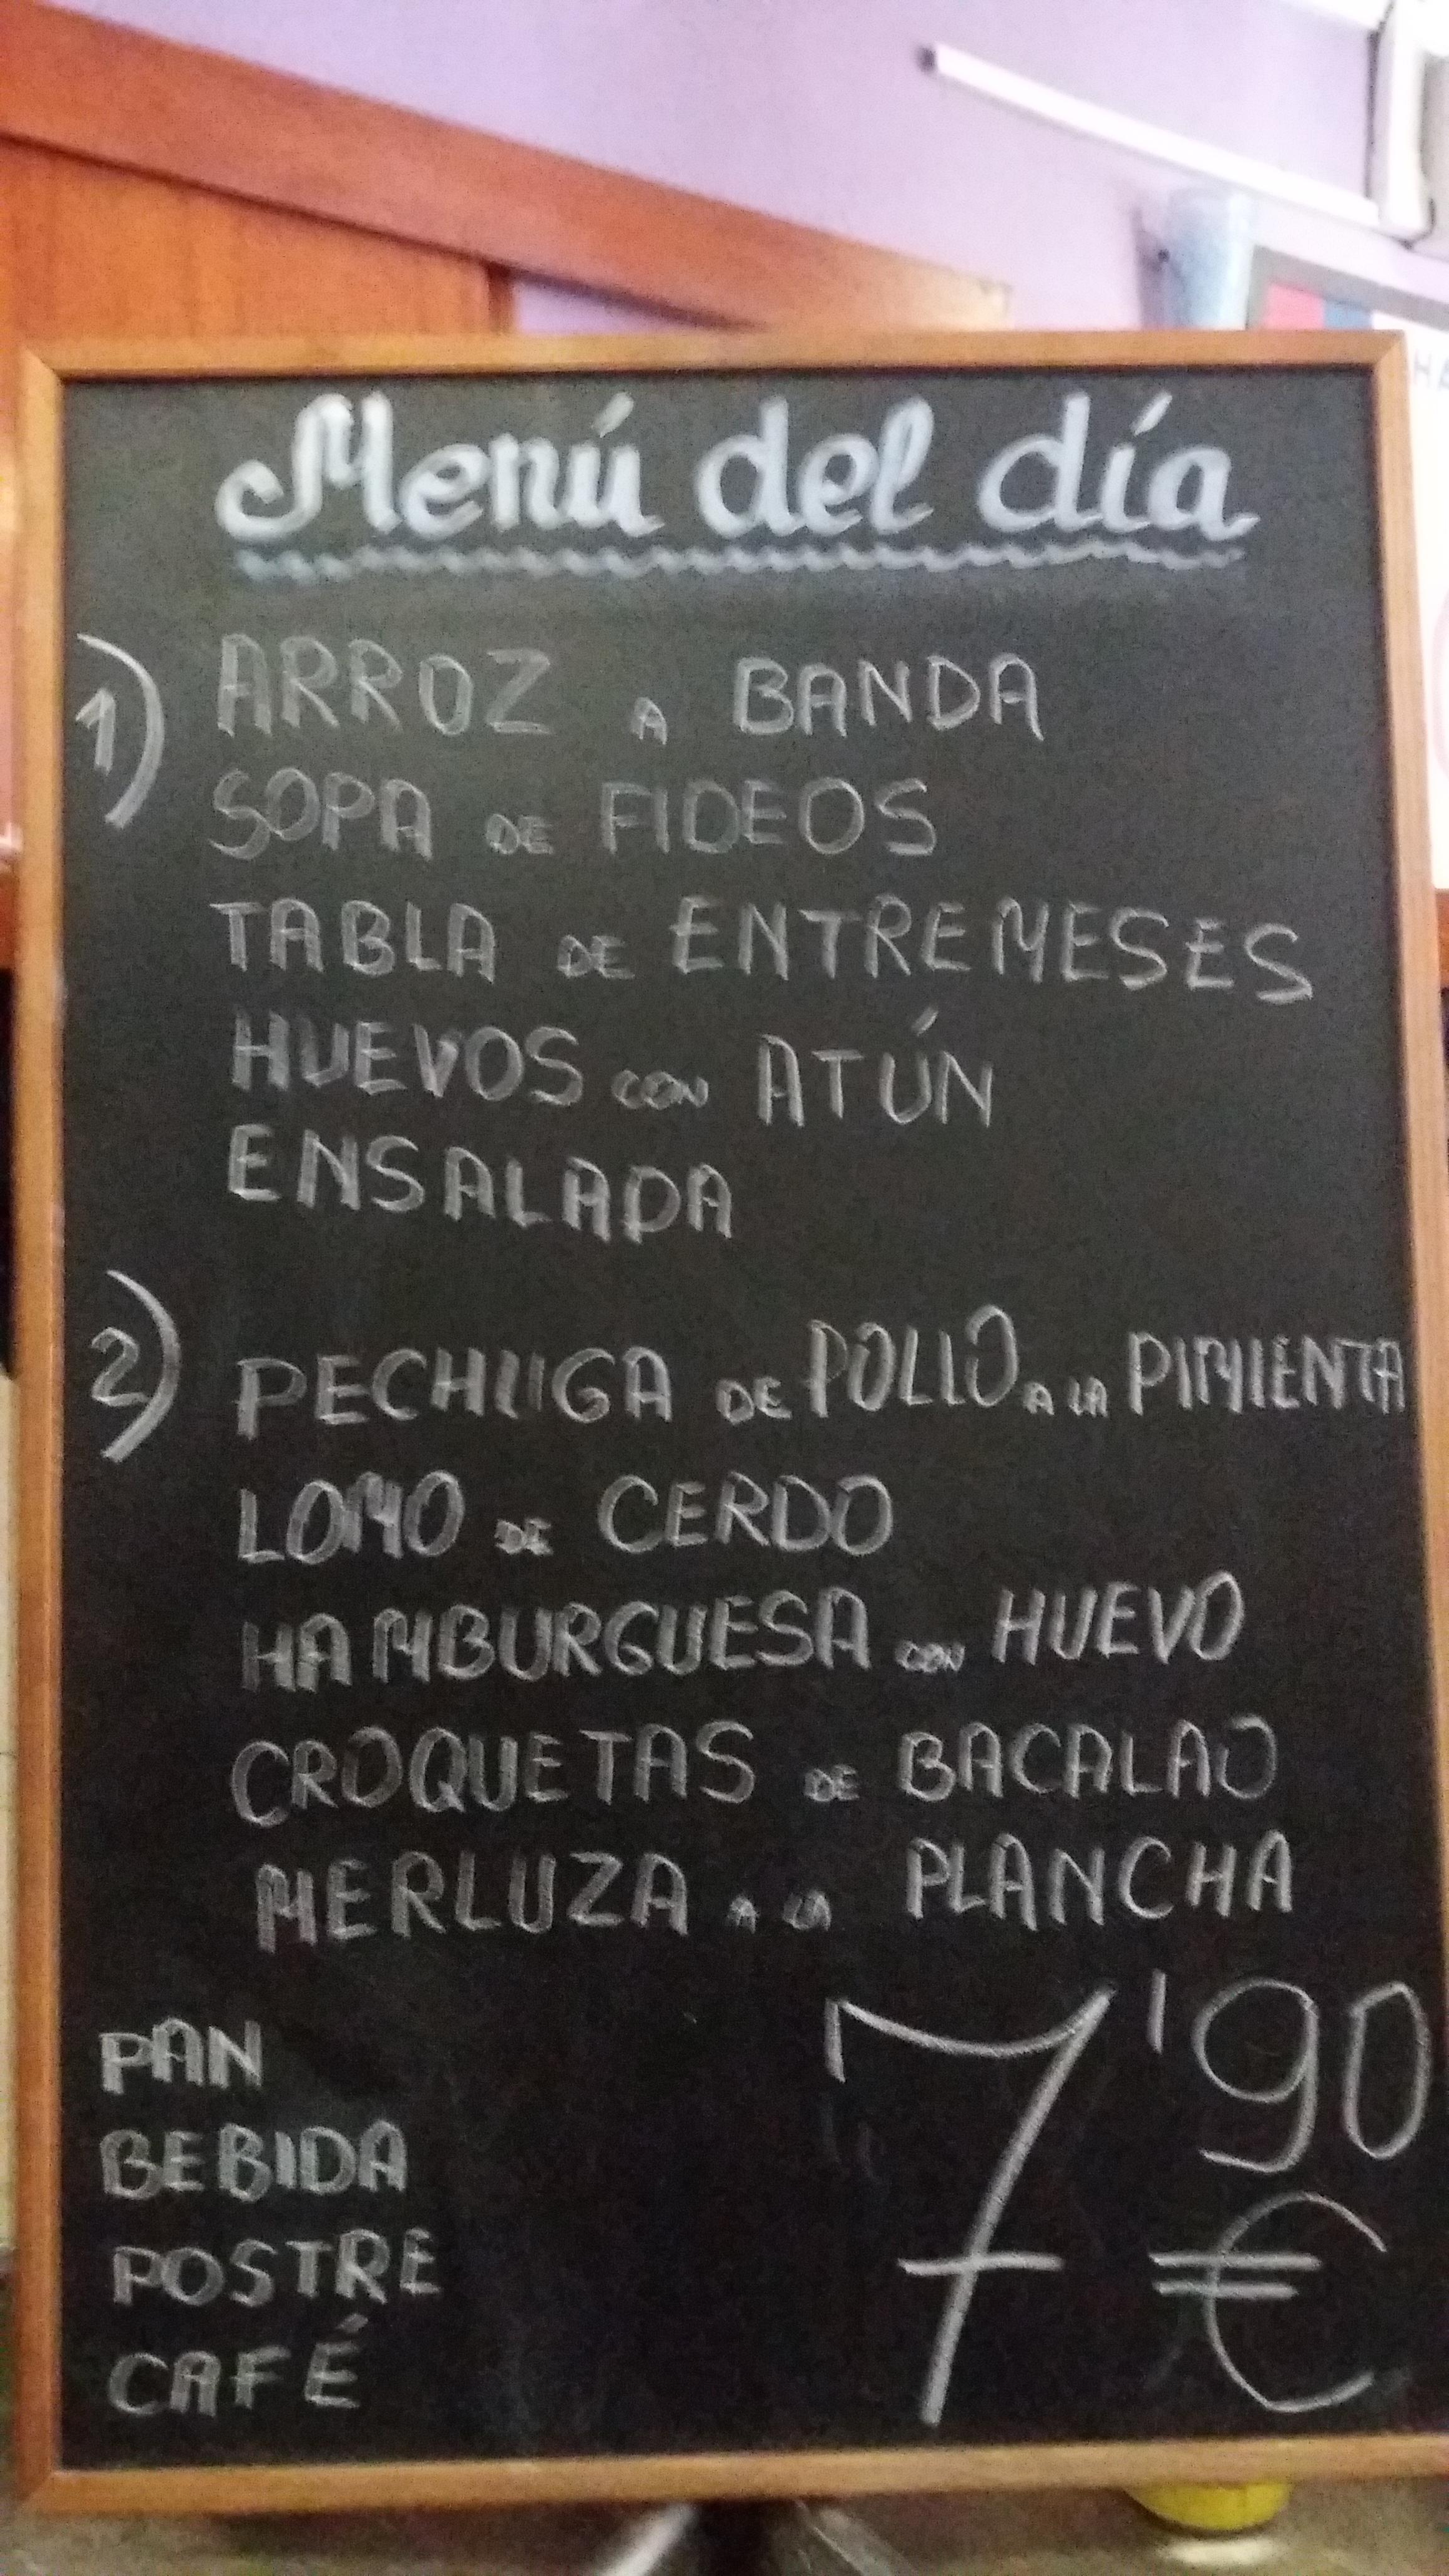 Menú del día
1) ARROZ A BANDA
SOPA DE FIDEOS
TABLA DE ENTREMESES
HUEVOS CON ATÚN
ENSALADA
2) PECHUGA DE POLLO A LA PIMIENTA
LOMO DE CERDO
HAMBURGUESA CON HUEVO
CROQUETAS DE BACALAO
MERLUZA A LA PLANCHA
PAN
BEBIDA
POSTRE
CAFÉ
7'90 €